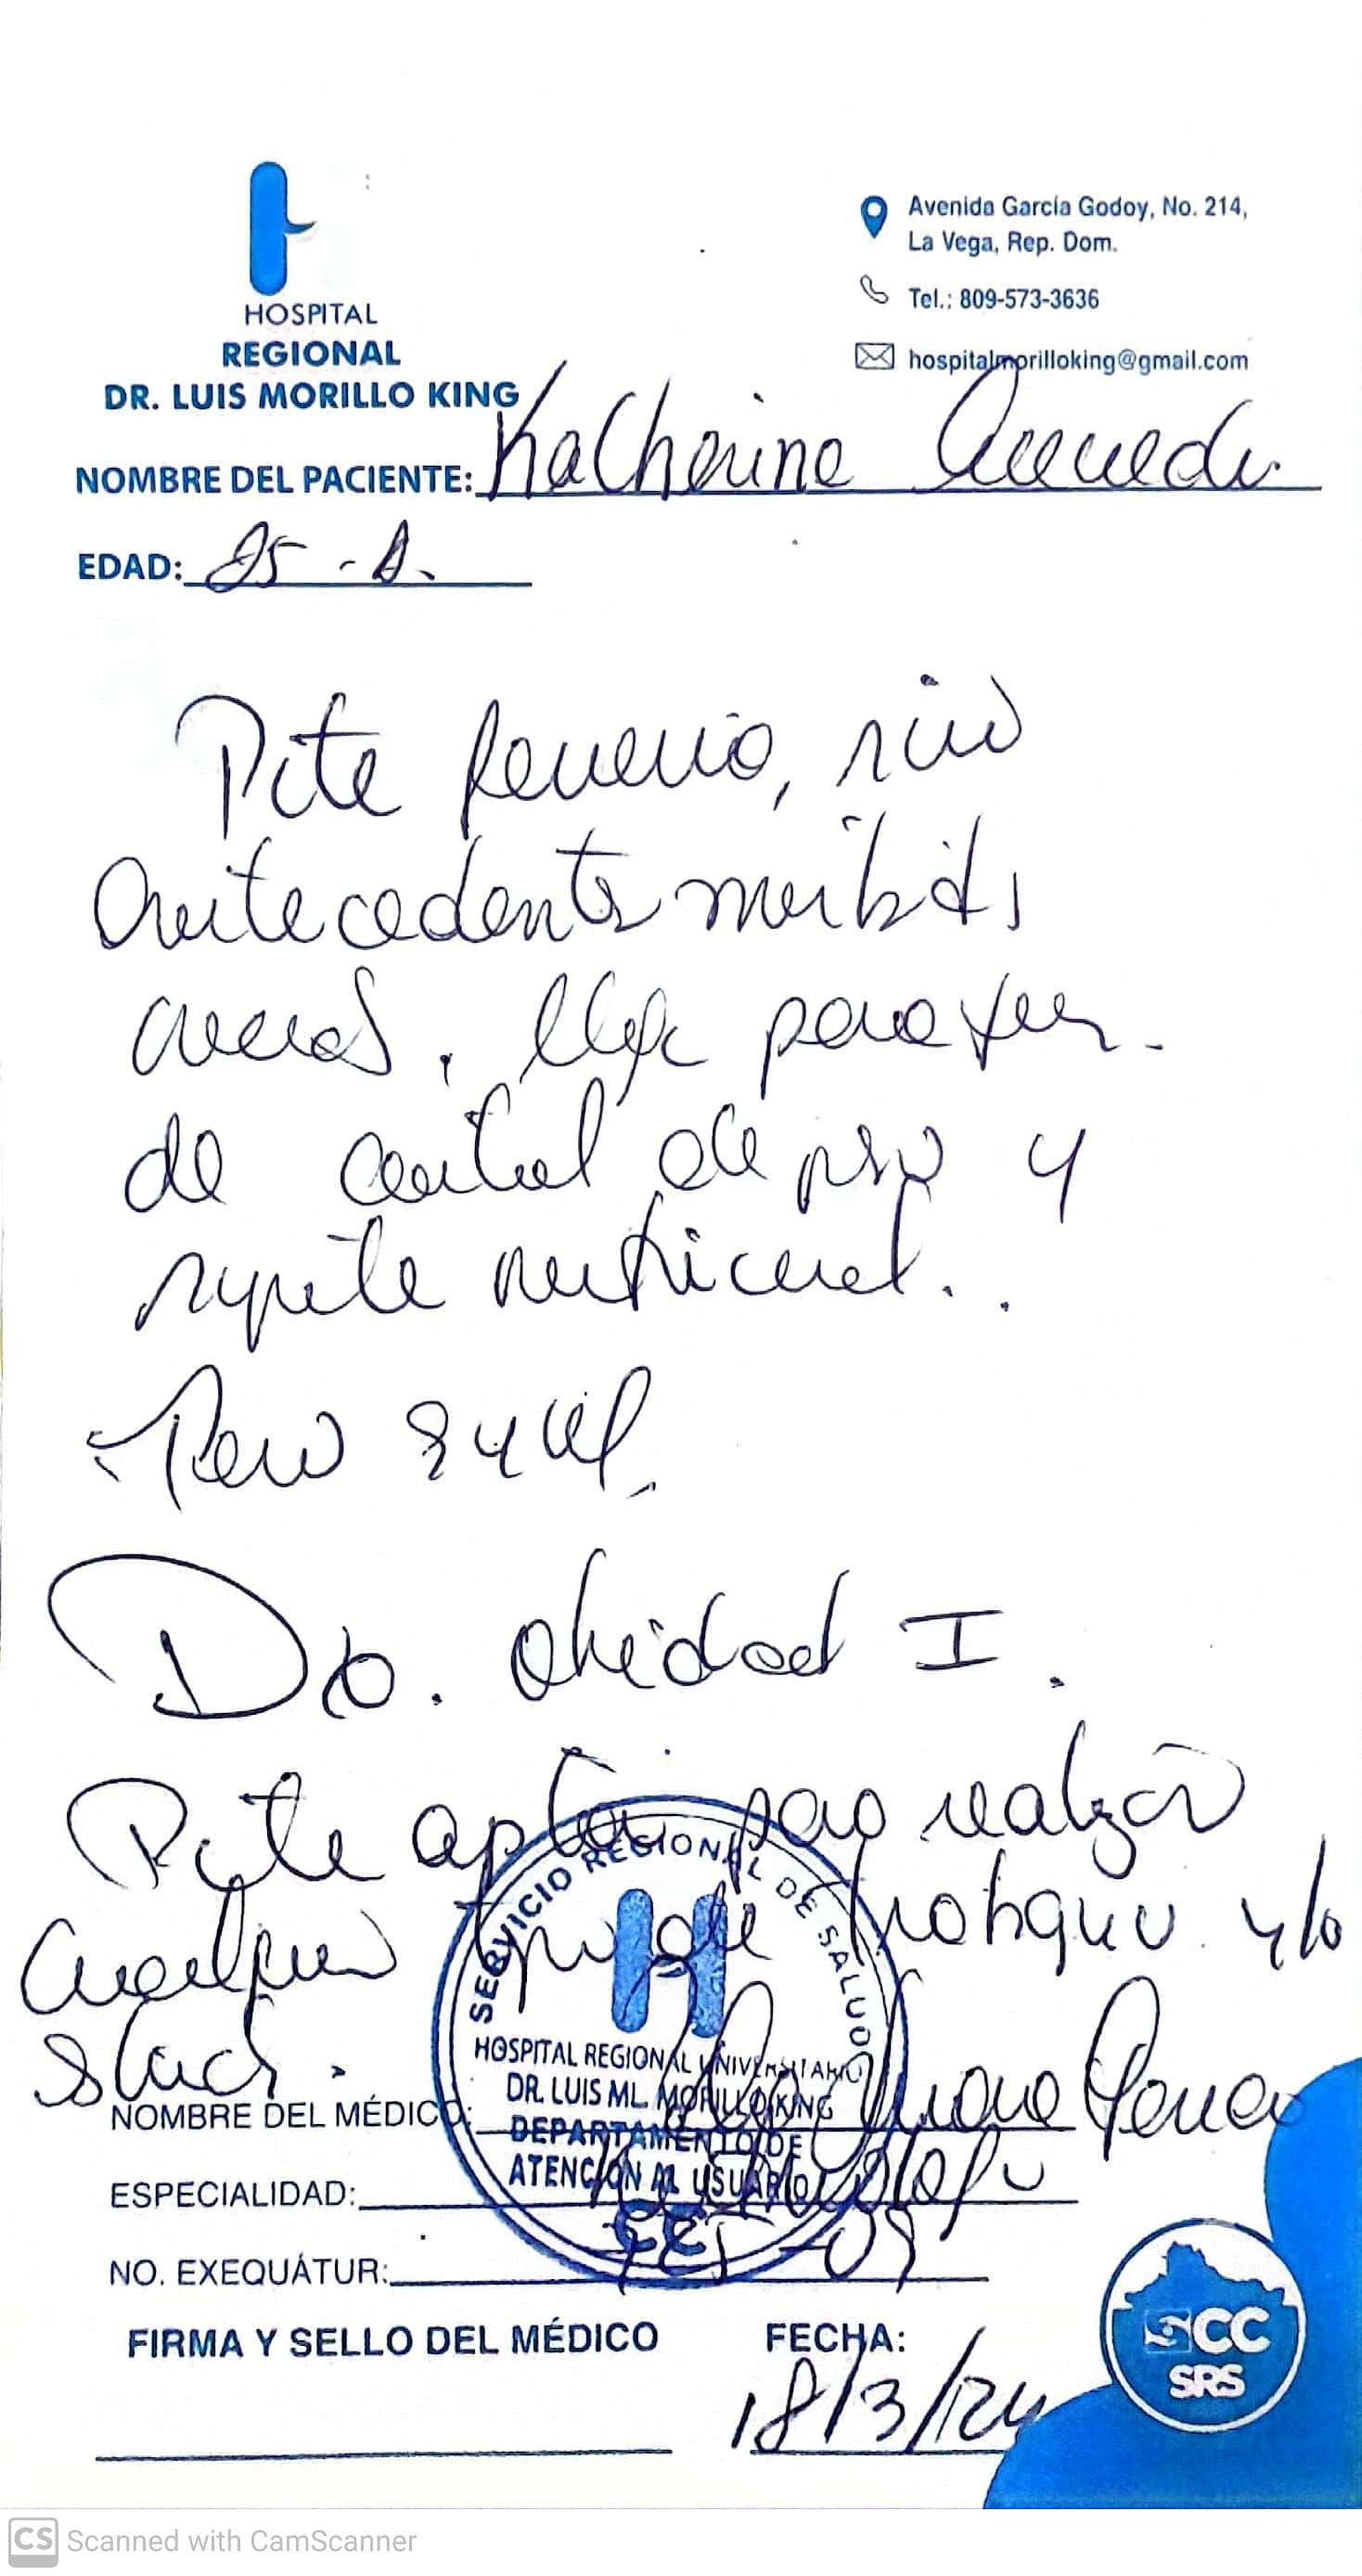 HOSPITAL
REGIONAL
DR. LUIS MORILLO KING
Avenida García Godoy, No. 214,
La Vega, Rep. Dom.
Tel.: 809-573-3636
hospitalmorilloking@gmail.com
NOMBRE DEL PACIENTE: Katherine
EDAD: 25 - A.
Pcte femenina, sin
antecedentes morbidos
. llega para
de control de peso y
nutricional.
Peso
Dx. obesidad I.
Pcte apta para realizar
cualquier tipo de trabajo y/o
NOMBRE DEL MÉDICO:
ESPECIALIDAD:
NO. EXEQUÁTUR:
SERVICIO REGIONAL DE SALUD
HOSPITAL REGIONAL UNIVERSITARIO
DR. LUIS ML. MORILLO KING
DEPARTAMENTO DE
ATENCIÓN AL USUARIO
FIRMA Y SELLO DEL MÉDICO
FECHA:
18/3/24
CC
SRS
CS Scanned with CamScanner